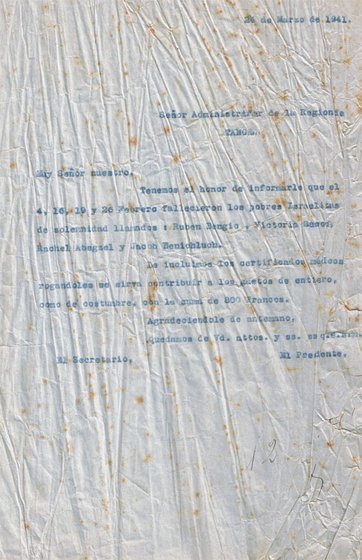 26 de Marzo de 1941.
Señor Administrador de la Regiones
TANGE.
Muy Señor nuestro,
Tenemos el honor de informarle que el
4, 16, 19 y 26 Febrero fallecieron los pobres Israelitas
de solemnidad llamados : Ruben Bengio , Victoria
Rachel Abegzel y Jacob Benichluch.
Le incluimos los certificados médicos
rogandoles se sirva contribuir a los gastos de entiero,
como de costumbre, con la suma de 800 Francos.
Agradeciendole de antemano,
Quedamos de Vd. attos. y ss.
El Secretario, El Predente,
12